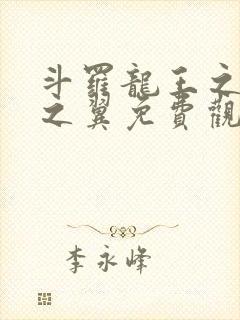 斗羅龍王之
之翼免費觀
李永峰